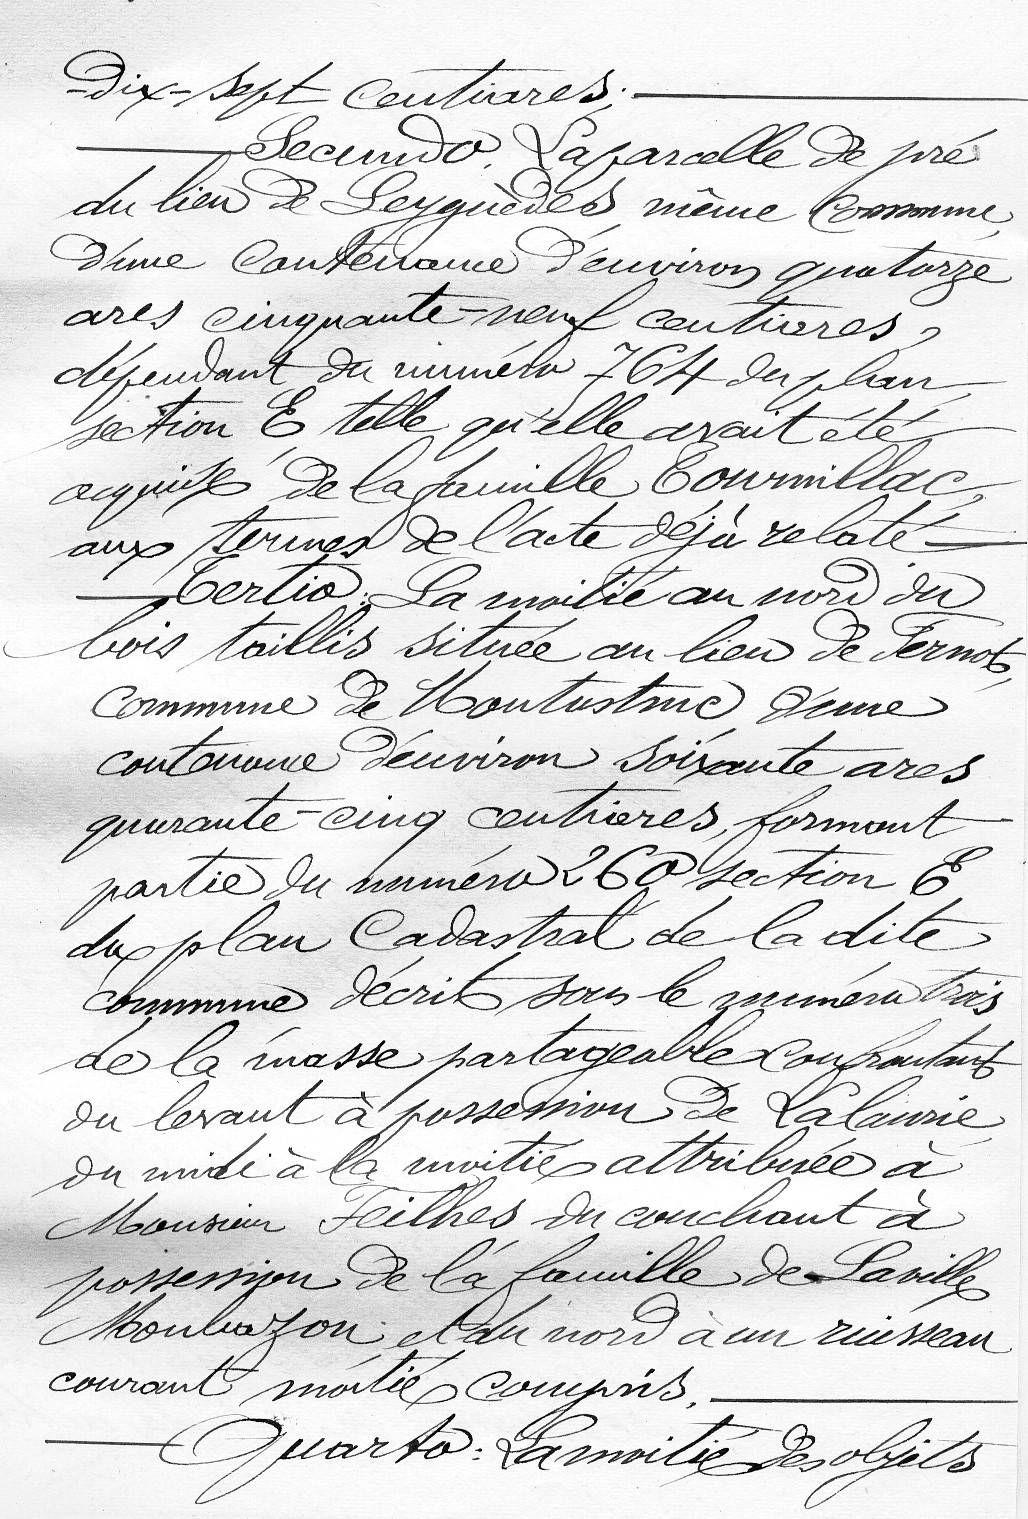 -Dix-sept centiares;
Secundo. La parcelle de pré
du lieu de Leyguèdes, même commune,
d'une contenance d'environ quatorze
ares cinquante-neuf centiares,
dépendant du numéro 764 du plan,
section E, telle qu'elle avait été
acquise de la famille Tournillac,
aux termes de l'acte déjà relaté
Tertio: La moitié au nord du
bois taillis située au lieu de Fernot,
commune de Montastruc d'une
contenance d'environ soixante ares
quarante-cinq centiares, formant
partie du numéro 260 section E
du plan Cadastral de la dite
commune décrit sous le numéro trois
de la masse partageable confrontant
du levant à possession de Lalaurie,
du midi à la moitié attribuée à
Monsieur Feilhes du couchant à
possession de la famille de Laville
Monbazon et du nord à un ruisseau
courant moitié compris.
Quarto: La moitié des objets